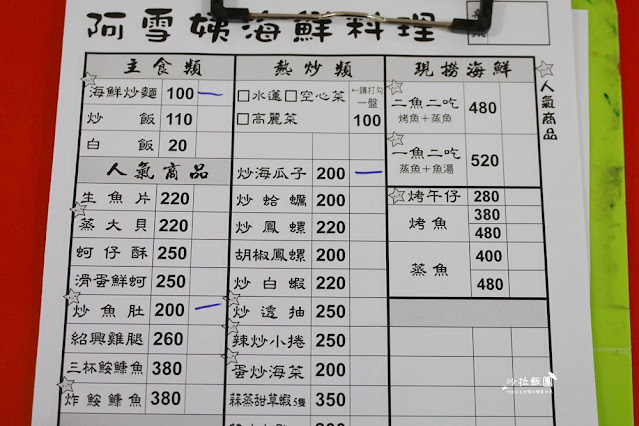 阿雪姨海鮮料理
主食類
海鮮炒麵 100
炒飯 110
白飯 20
人氣商品
生魚片 220
蒸大貝 220
蚵仔酥 250
滑蛋鮮蚵 250
炒魚肚 200
紹興雞腿 260
三杯鮟鱇魚 380
炸鮟鱇魚 380
熱炒類
□水蓮□空心菜
□高麗菜
←請打勾
一盤
100
炒海瓜子 200
炒蛤蠣 200
炒鳳螺 220
胡椒鳳螺 200
炒白蝦 220
炒透抽 250
辣炒小捲 250
蛋炒海菜 200
蒜蒸甜草蝦5隻 350
現撈海鮮
二魚二吃 480
烤魚+蒸魚
一魚二吃 520
蒸魚+魚湯
☆烤午仔 280
烤魚 380
480
蒸魚 400
480
☆人氣商品
沙拉飯團